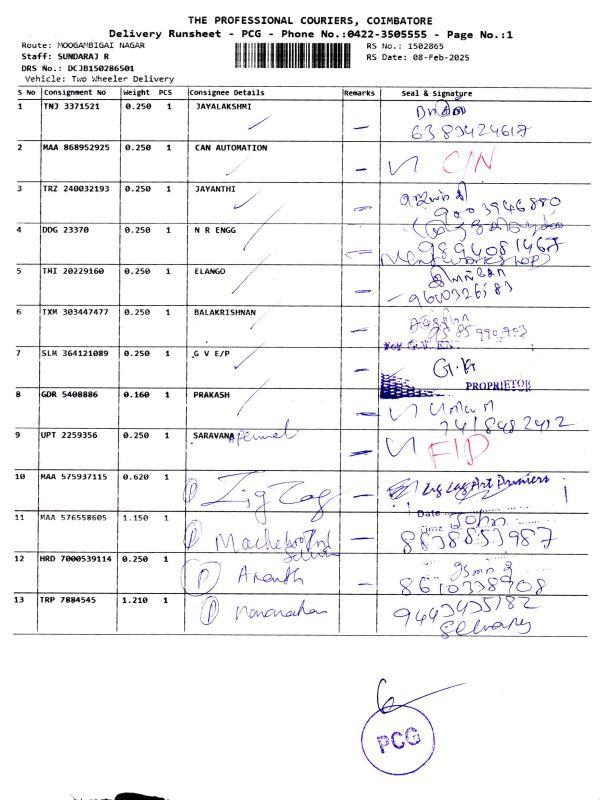 THE PROFESSIONAL COURIERS, COIMBATORE
Delivery Runsheet - PCG - Phone No.:0422-3505555 - Page No.:1
Route: MOOGAMBIGAI NAGAR RS No.: 1502865
Staff: SUNDARAJ R RS Date: 08-Feb-2025
DRS No.: DCJB150286501
Vehicle: Two Wheeler Delivery
S No Consignment No Weight PCS Consignee Details Remarks Seal & Signature
1 TNJ 3371521 0.250 1 JAYALAKSHMI
6383424617
2 MAA 868952925 0.250 1 CAN AUTOMATION C/N
3 TRZ 240032193 0.250 1 JAYANTHI
9003946880
4 DDG 23370 0.250 1 N R ENGG
9894081467
5 THI 20229160 0.250 1 ELANGO
6 IXM 303447477 0.250 1 BALAKRISHNAN
7 SLM 364121089 0.250 1 G V E/P G.G
PROPRIETOR
8 GDR 5408886 0.160 1 PRAKASH
7418982412
9 UPT 2259356 0.250 1 SARAVANA Perumal F/D
10 MAA 575937115 0.620 1 P Zig Zag Zig Zag Art Printers
Date
11 MAA 576558605 1.150 1 P John
Time
8838853987
12 HRD 7000539114 0.250 1 P Ananth
8610338908
13 TRP 7884545 1.210 1 P Manonathan
9443435182
PCG